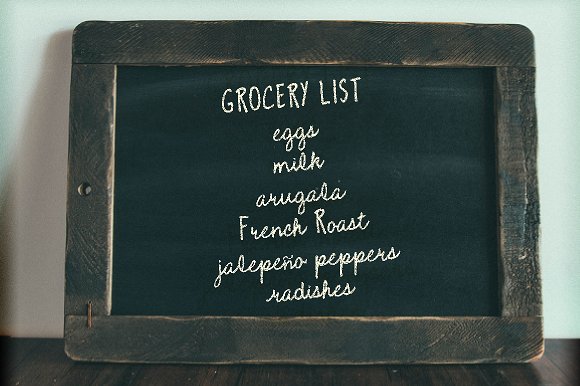 GROCERY LIST
eggs
milk
arugala
French Roast
jalepeño peppers
radishes